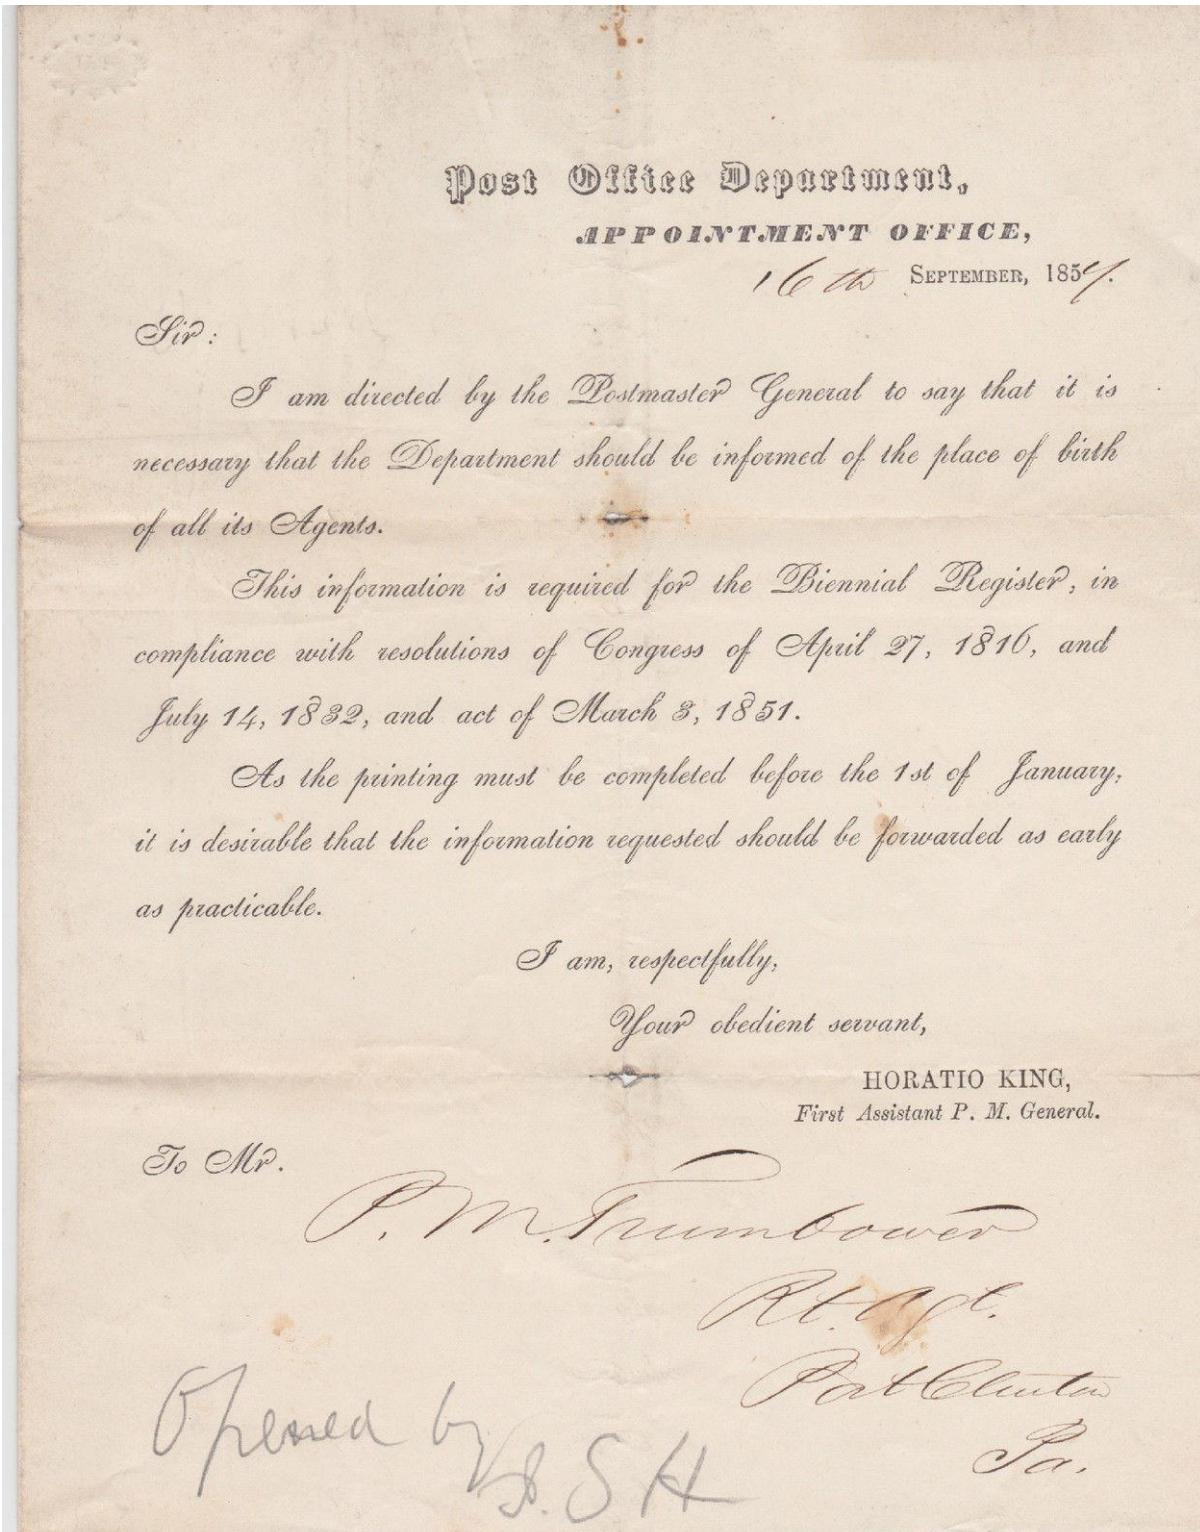 Post Office Department,
APPOINTMENT OFFICE,
16th September, 1857.
Sir:
I am directed by the Postmaster General to say that it is
necessary that the Department should be informed of the place of birth
of all its Agents.
This information is required for the Biennial Register, in
compliance with resolutions of Congress of April 27, 1816, and
July 14, 1832, and act of March 3, 1851.
As the printing must be completed before the 1st of January,
it is desirable that the information requested should be forwarded as early
as practicable.
I am, respectfully,
Your obedient servant,
HORATIO KING,
First Assistant P. M. General.
To Mr.
P. M. Trumbower
Rt. Agt.
Port Clinton
Pa.
Opened by
S H